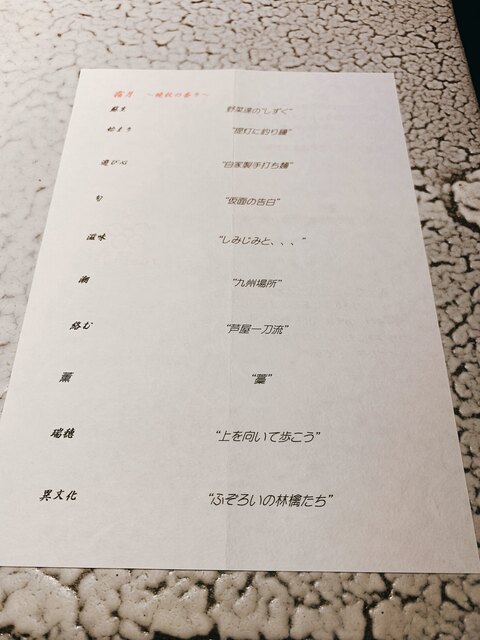 霜月 ～晩秋の香り～
蘇生 “野菜達のしずく”
始まり “提灯に釣り鐘”
遊び心 “自家製手打ち麺”
旬 “仮面の告白”
滋味 “しみじみと、、、”
潮 “九州場所”
絡む “芦屋一刀流”
薫 “藁”
瑞穂 “上を向いて歩こう”
異文化 “ふぞろいの林檎たち”